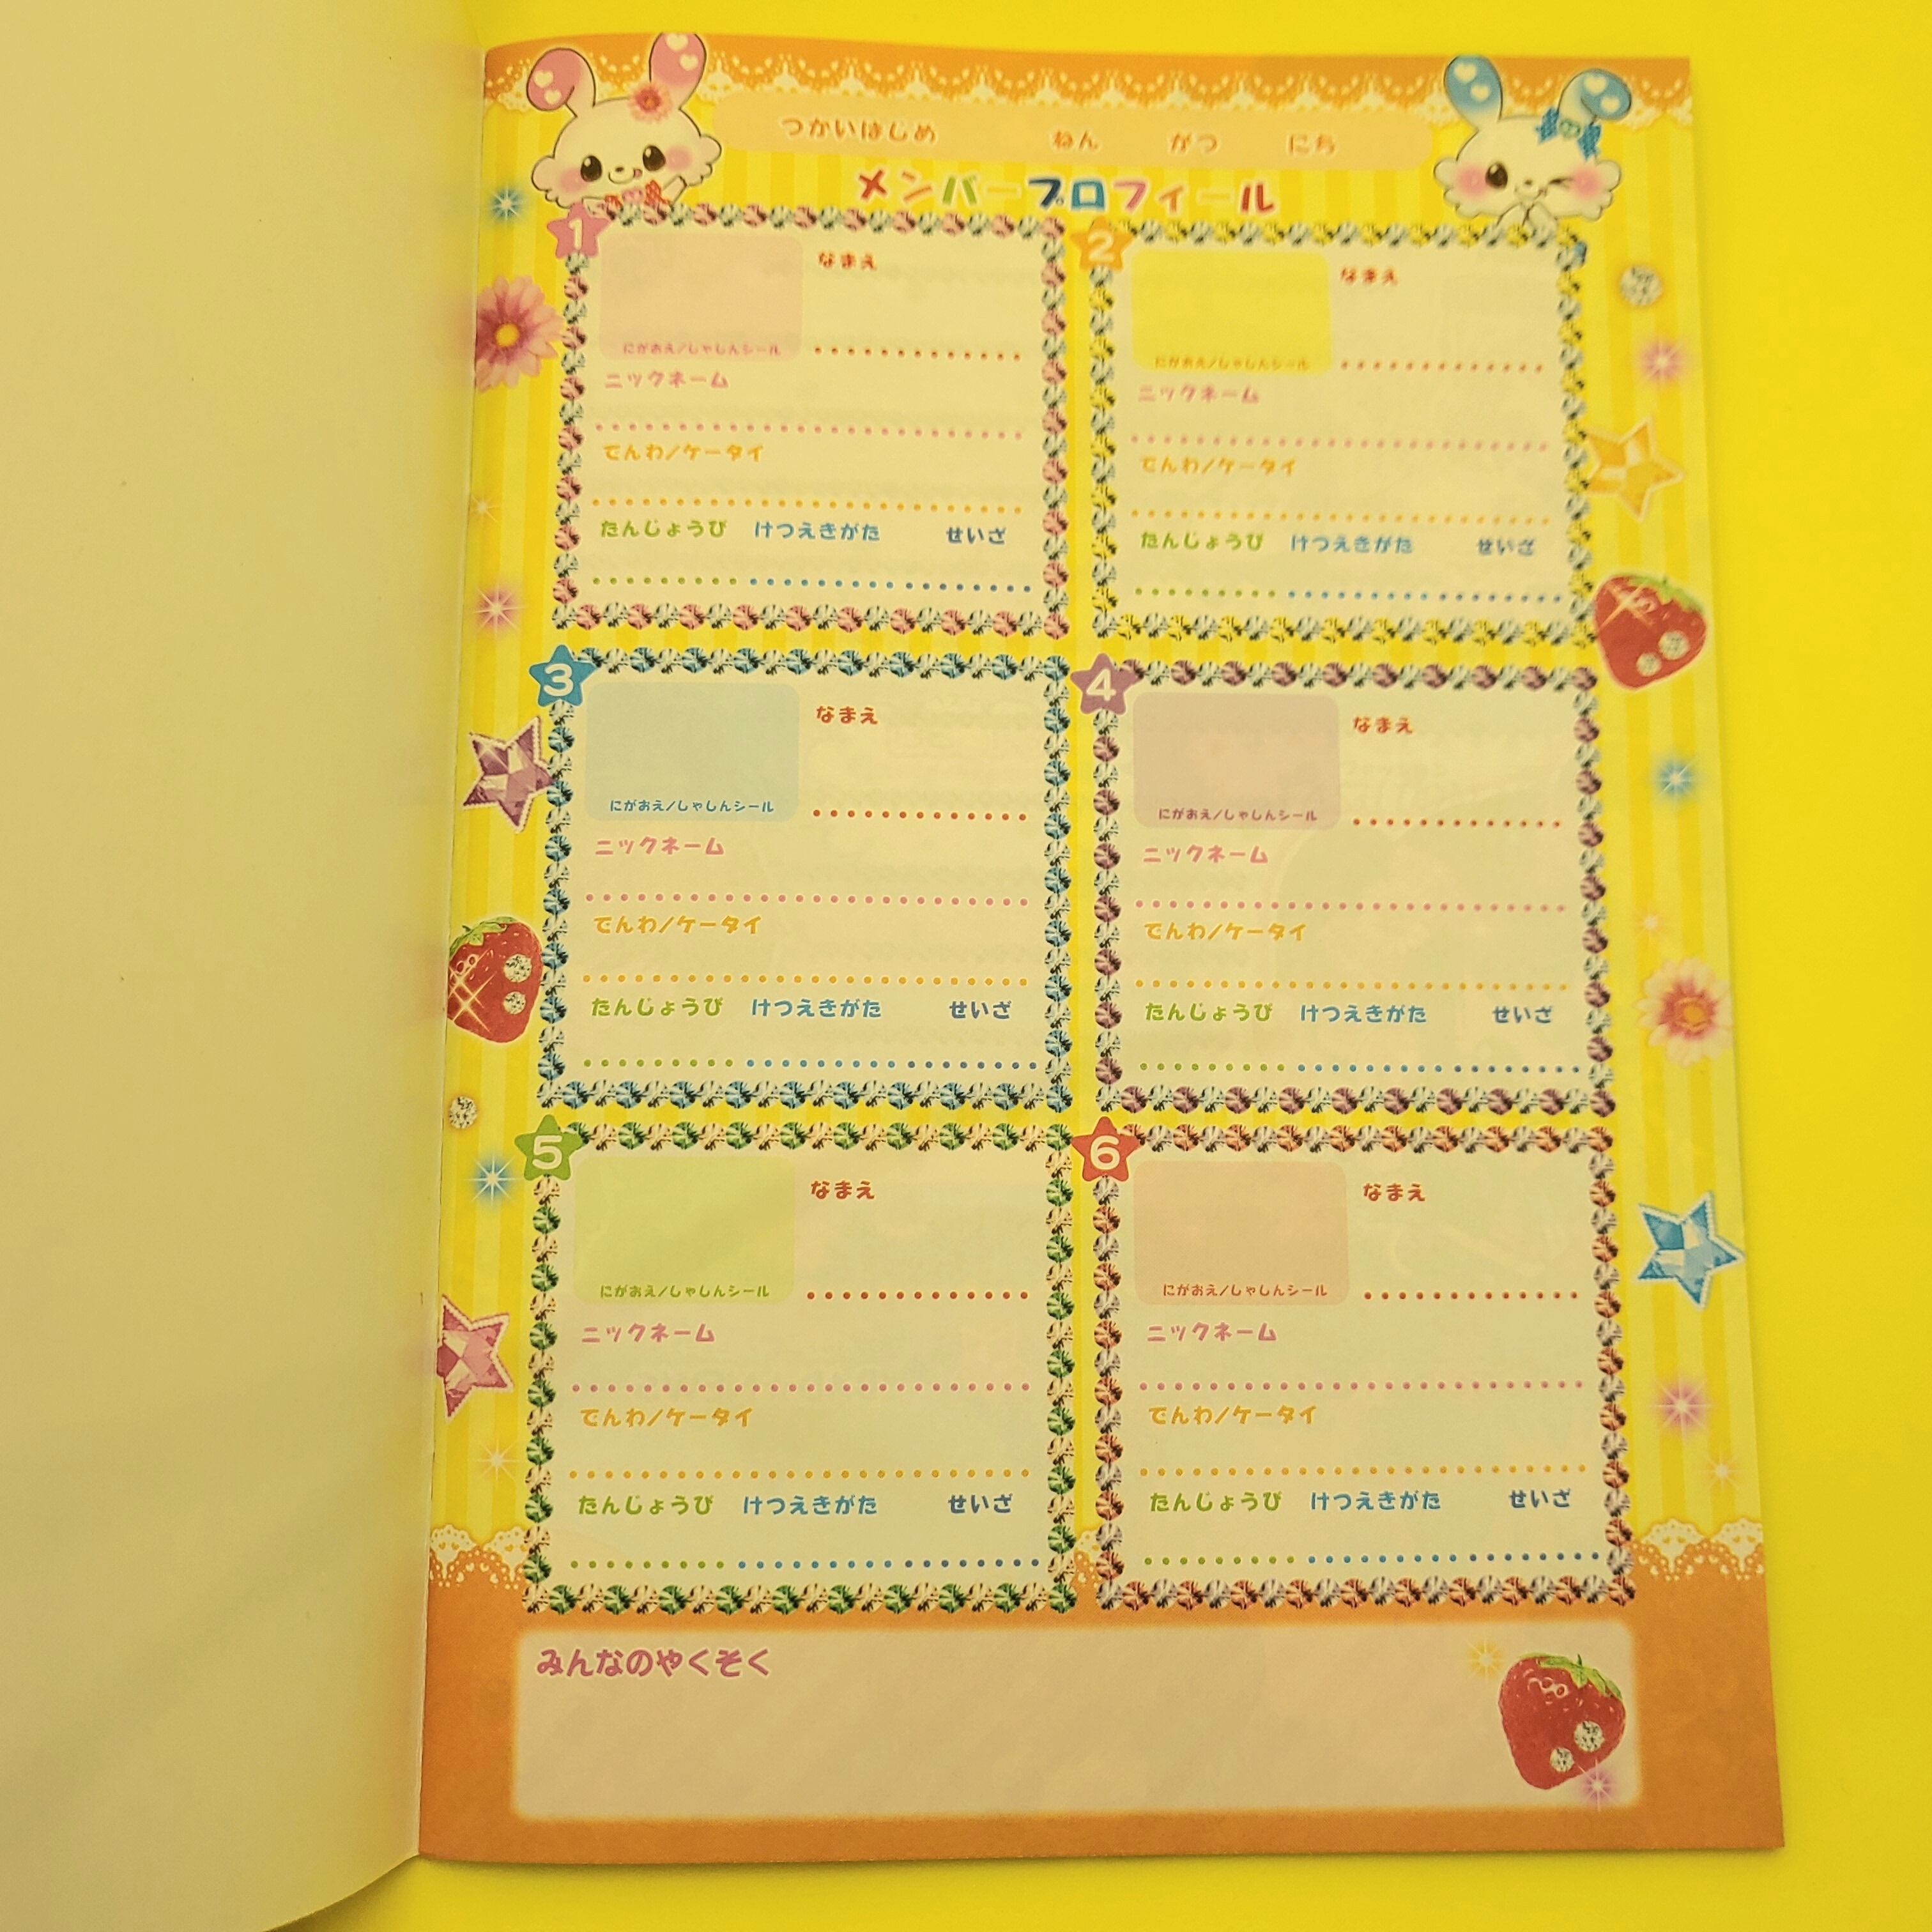 つかいはじめ ねん がつ にち
メンバープロフィール
1
なまえ
にがおえ/しゃしんシール
ニックネーム
でんわ/ケータイ
たんじょうび けつえきがた せいざ
2
なまえ
にがおえ/しゃしんシール
ニックネーム
でんわ/ケータイ
たんじょうび けつえきがた せいざ
3
なまえ
にがおえ/しゃしんシール
ニックネーム
でんわ/ケータイ
たんじょうび けつえきがた せいざ
4
なまえ
にがおえ/しゃしんシール
ニックネーム
でんわ/ケータイ
たんじょうび けつえきがた せいざ
5
なまえ
にがおえ/しゃしんシール
ニックネーム
でんわ/ケータイ
たんじょうび けつえきがた せいざ
6
なまえ
にがおえ/しゃしんシール
ニックネーム
でんわ/ケータイ
たんじょうび けつえきがた せいざ
みんなのやくそく